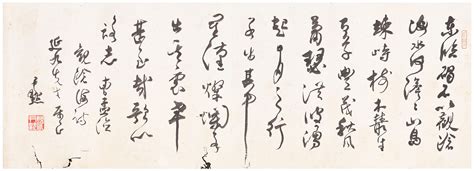 東臨碣石以觀滄
海水何澹澹山島
竦峙樹木叢生
百草豐茂秋風
蕭瑟洪波湧
起日月之行
若出其中
星漢燦爛若
出其裏幸
甚至哉歌以
詠志 曹孟德
觀滄海